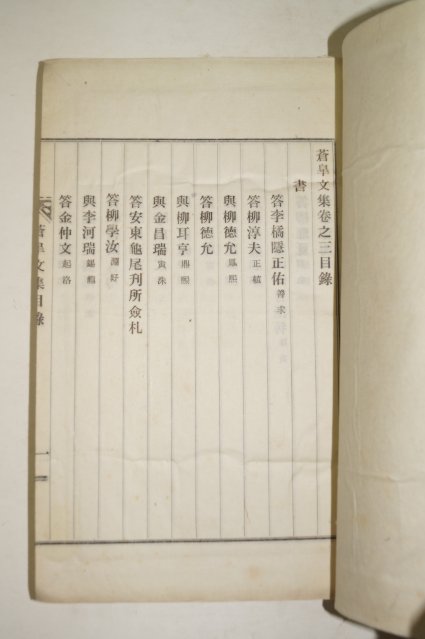 蒼皐文集卷之三目錄
書
答李橘隱正佑 善求
答柳淳夫 正植
與柳德允 熙
答柳德允
與柳耳亨 熙
與金昌瑞 洙
答安東龜尾刋所僉札
答柳學汝 好
與李河瑞
答金仲文 起洛
蒼皐文集目錄
一